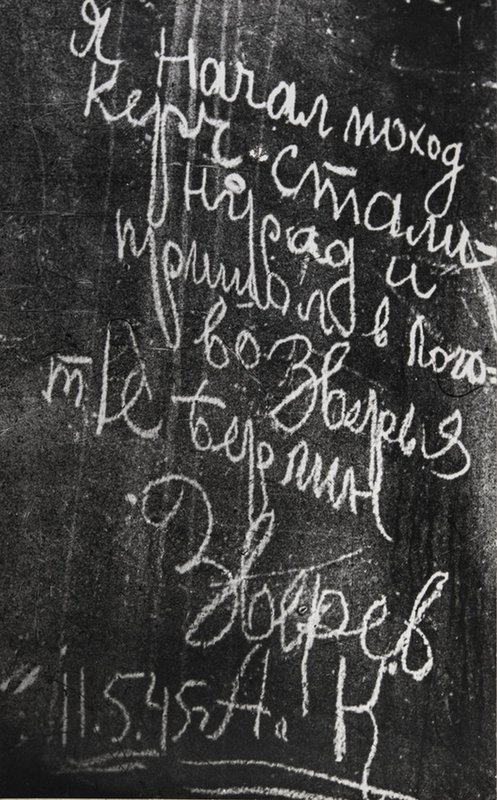 Я Начал поход
Керч-Стали-
нград и
пришол в Лого-
во Зверья
т/е Берлин
Зверев
11.5.45г А. К